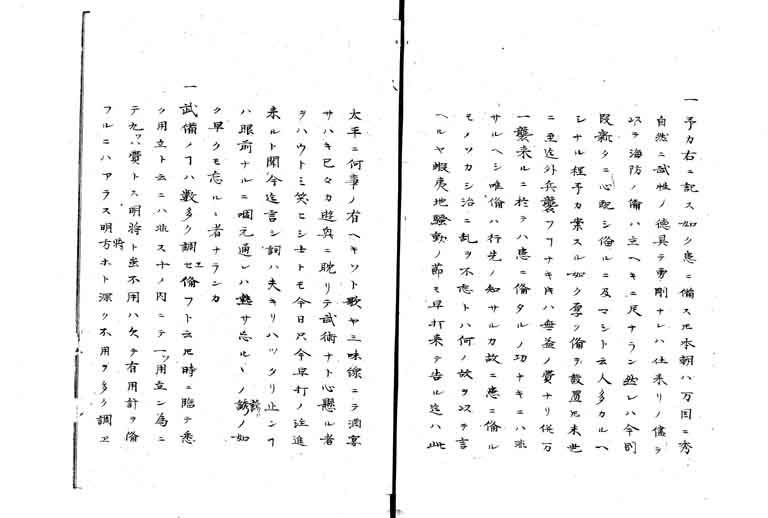 一予カ右ニ記ス如ク患ニ備ス圧本朝ハ万国ニ秀
自然ニ武性ノ徳具テ勇剛ナレハ仕来リノ儘ヲ
以ラ海防ノ備ハ立ヘキニ足ナラン然レハ今別
段新タニ心配シ備ルニ及マシト云人多カルヘ
シナル程予カ案スル如ク厚ク備ヲ設置圧末世
ニ至迄外兵襲フ𬼀ナキ時ハ無益ノ費ナリ従万
一襲来ルニ於テハ患ニ備タルノ功ナキニハ非
サルヘシ唯備ハ行先ノ知サルカ故ニ患ニ備ル
モノソカシ治ニ乱ヲ不忘トハ何ノ故ヲ以テ言
ヘルヤ蝦夷地騒動ノ節モ早打来テ告ル迄ハ此
太平ニ何事ノ有ヘキソト歌ヤ三味線ニテ酒宴
サハキ已々カ遊興ニ耽リテ武術ナト心懸ル者
ヲハウトミ笑ヒシ士トモ今日只今早打ノ注進
来ルト聞今迄言シ詞ハ夫キリハツタリ止シ𬼀
ハ眼前ナルニ喉元通レハ熱サ忘ルヽノ諺ノ如
ク早クモ忘ルヽ者ナランカ
一武備ノ𬼀ハ数多ク調ヱセ備フト云圧時ニ臨テ悉
ク用立ト云ニハ非ス十ノ内ニテ一ツ用立ン為ニ
テ九ツハ費トス明将ト虽不用ハ欠テ有用計ヲ備
フルニハアラス明将方ホト深ク不用ヲ多ク調ヱ